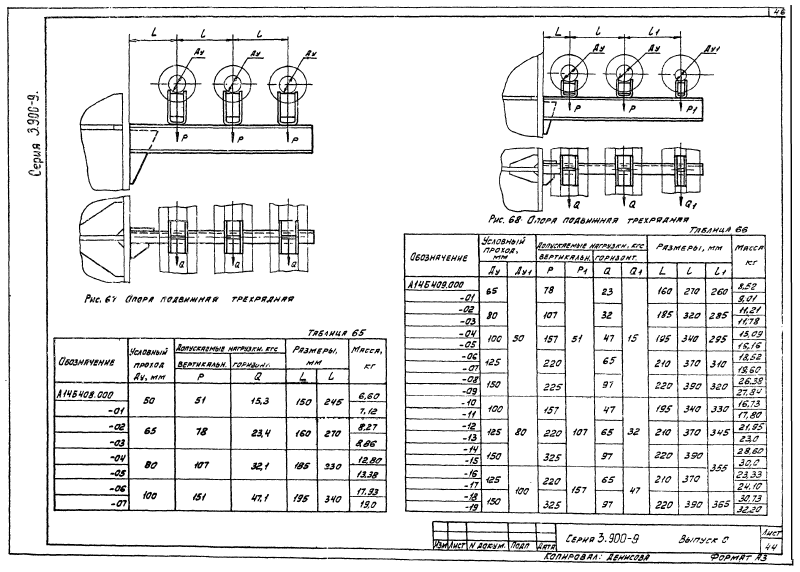 46
Серия 3.900-9.
L L L
Ду Ду Ду
P P P
Q Q Q
Рис. 67 Опора подвижная трехрядная
L L L1
Ду Ду Ду1
P P P1
Q Q Q1
Рис. 68 Опора подвижная трехрядная
Таблица 65
Обозначение
Условный проход Ду, мм
Допускаемые нагрузки, кгс
Вертикальн. P
Горизонт. Q
Размеры, мм
L L
Масса, кг
А14Б408.000 50 51 15,3 150 245 6,60
-01 7,12
-02 65 78 23,4 160 270 8,27
-03 8,86
-04 80 107 32,1 185 330 12,80
-05 13,38
-06 100 151 47,1 195 340 17,93
-07 19,0
Таблица 66
Обозначение
Условный проход, мм
Ду Ду1
Допускаемые нагрузки, кгс
Вертикальн. Горизонт.
P P1 Q Q1
Размеры, мм
L L L1
Масса кг
А14Б409.000 65 50 78 51 23 15 160 270 260 8,52
-01 9,01
-02 80 107 32 185 320 285 11,21
-03 11,78
-04 100 157 47 195 340 295 15,09
-05 15,16
-06 125 220 65 210 370 310 18,52
-07 19,60
-08 150 225 97 220 390 320 26,38
-09 27,84
-10 100 80 157 107 47 32 195 340 330 16,73
-11 17,80
-12 125 220 65 210 370 345 21,95
-13 23,0
-14 150 325 97 220 390 355 28,60
-15 30,0
-16 125 100 220 157 65 47 210 370 23,33
-17 24,10
-18 150 325 97 220 390 365 30,73
-19 32,20
Изм Лист N докум. Подп Дата
Серия 3.900-9 Выпуск 0
Лист
44
Копировал: Денисова Формат А3